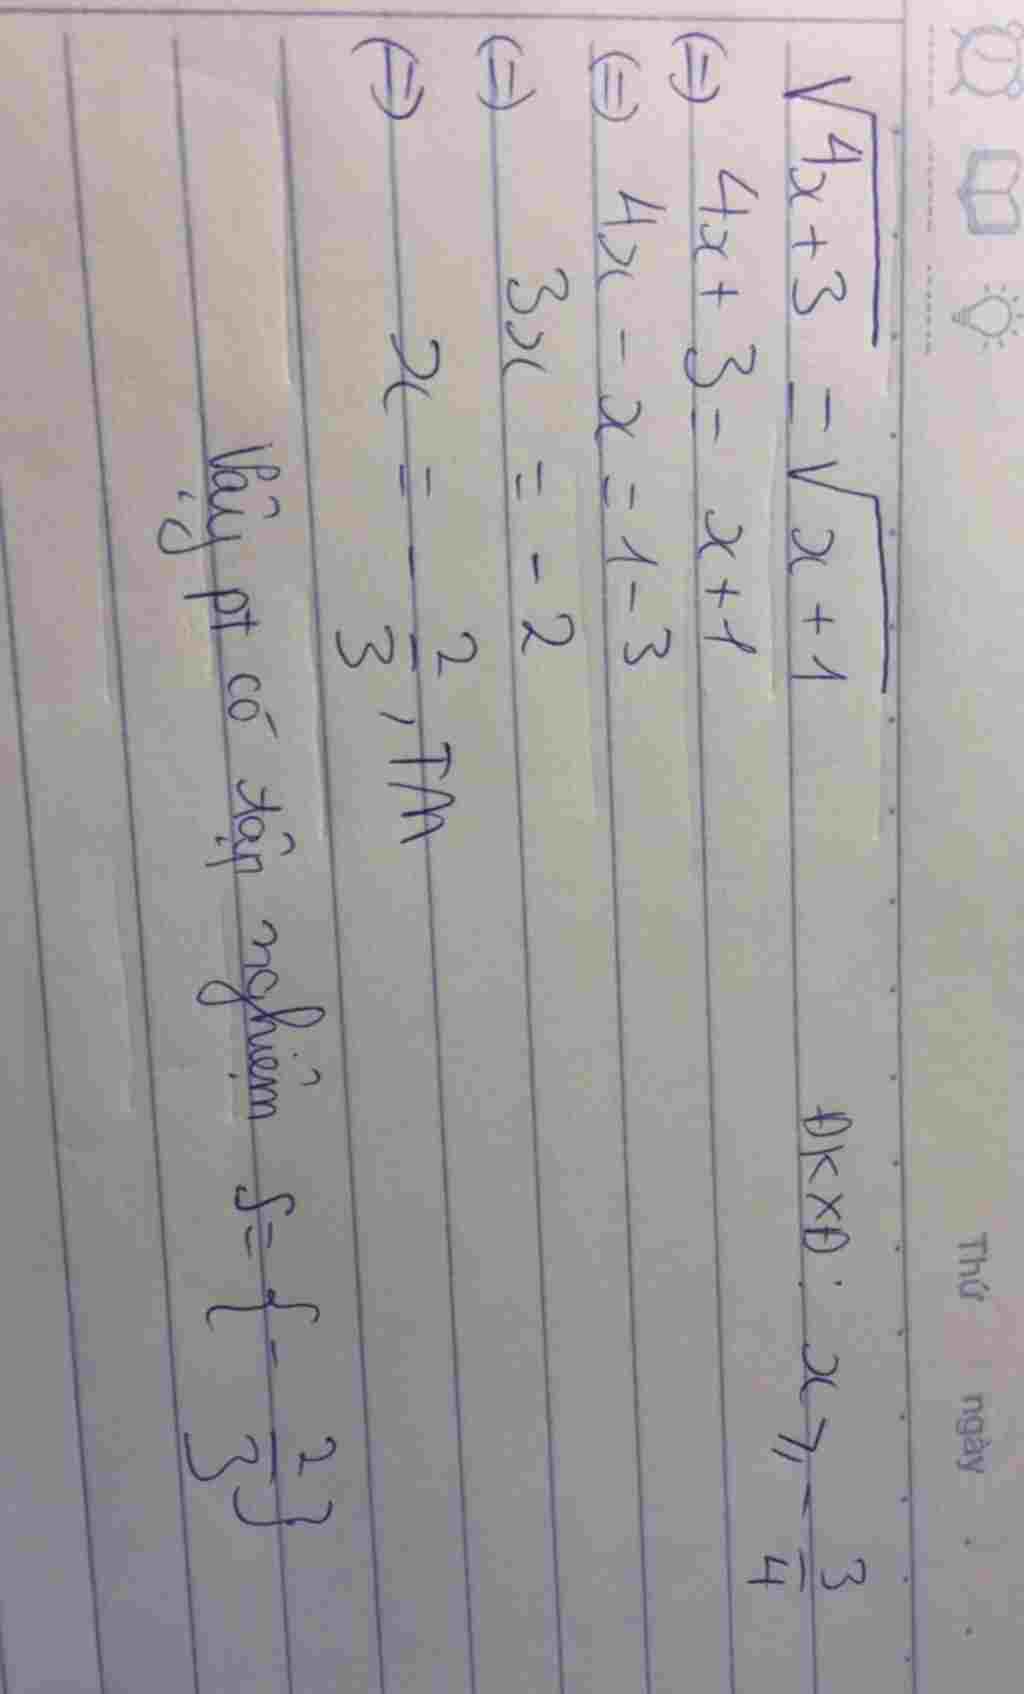 Thứ ngày
√(4x+3) = √(x+1) ĐKXĐ: x ⩾ -3/4
(=) 4x+3 = x+1
(=) 4x - x = 1 - 3
(=) 3x = -2
(=) x = -2/3, TM
Vậy pt có tập nghiệm S = {-2/3}